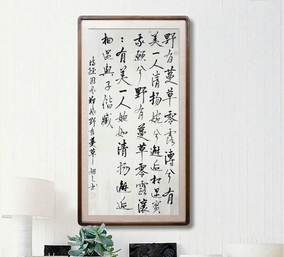 野有蔓草零露漙兮有
美一人清揚婉兮邂逅相遇適
我願兮野有蔓草零露瀼
：有美一人婉如清揚邂逅
相遇與子偕臧
詩經國風鄭風野有蔓草